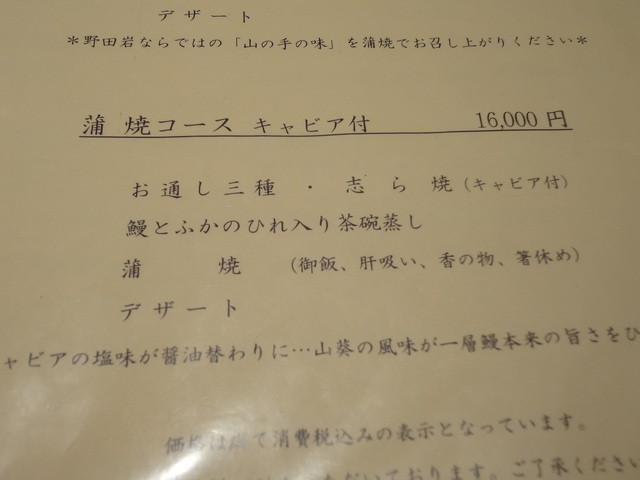 デザート
＊野田岩ならではの「山の手の味」を蒲焼でお召し上がりください＊
蒲 焼コース キャビア付 16,000 円
お通し三種 ・ 志ら焼（キャビア付）
鰻とふかのひれ入り茶碗蒸し
蒲 焼 （御飯、肝吸い、香の物、箸休め）
デザート
ャビアの塩味が醤油替わりに…山葵の風味が一層鰻本来の旨さをひ
価格は 消費税込みの表示となっています。
いただいております。ご了承ください